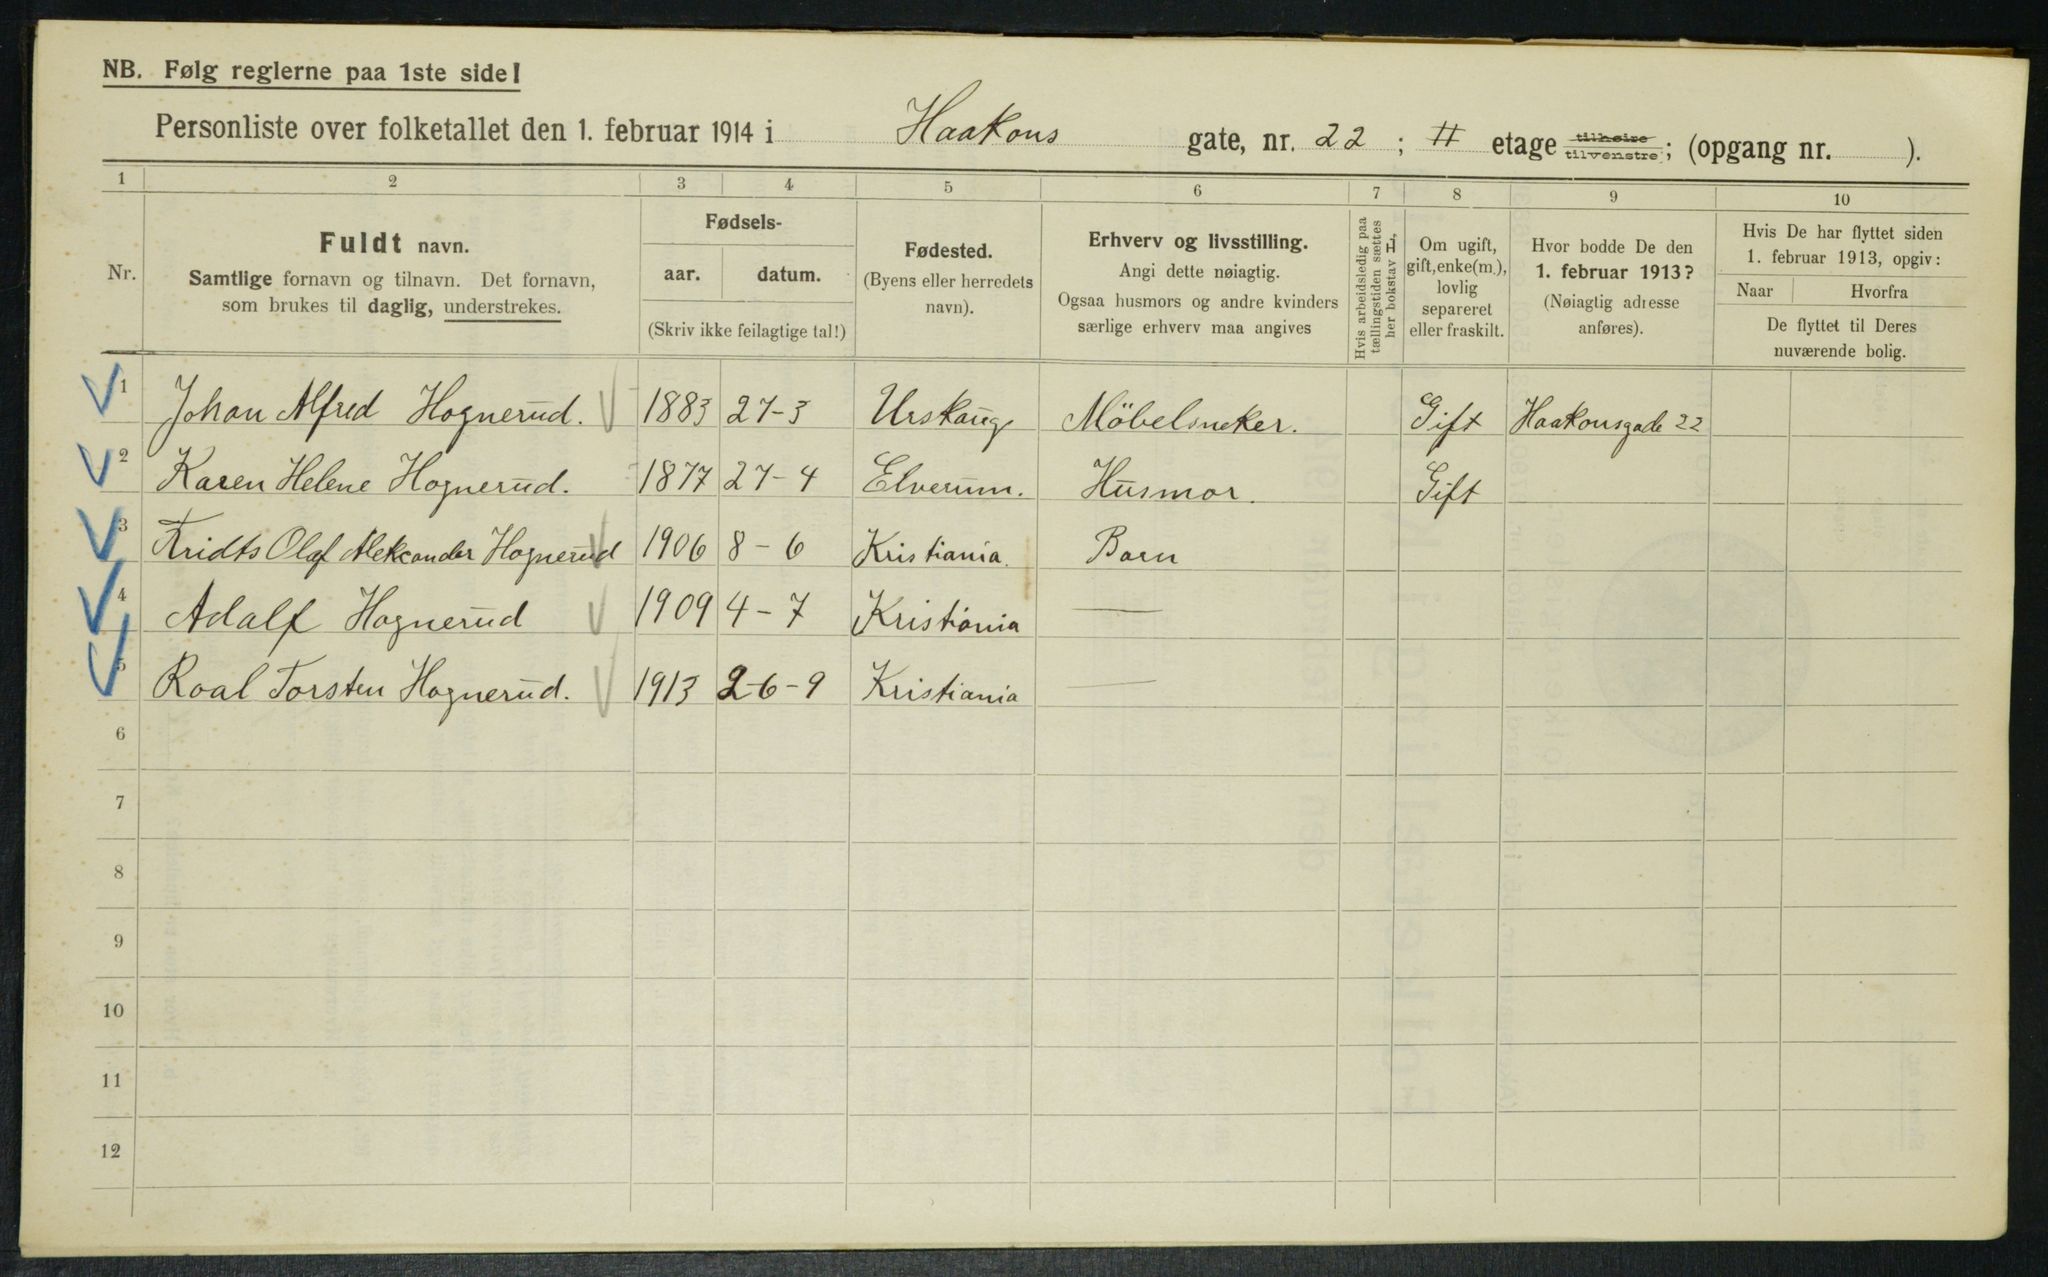 NB. Følg reglerne paa 1ste side!
Personliste over folketallet den 1. februar 1914 i Haakons gate, nr. 22 ; II etage tilhøire tilvenstre ; (opgang nr. ).
1 2 3 4 5 6 7 8 9 10
Nr.
Fuldt navn.
Samtlige fornavn og tilnavn. Det fornavn,
som brukes til daglig, understrekes.
Fødsels-
aar. datum.
(Skriv ikke feilagtige tal!)
Fødested.
(Byens eller herredets
navn).
Erhverv og livsstilling.
Angi dette nøiagtig.
Ogsaa husmors og andre kvinders
særlige erhverv maa angives
Hvis arbeidsledig paa
tællingstiden sættes
her bokstav L,
Om ugift,
gift, enke(m.),
lovlig
separeret
eller fraskilt.
Hvor bodde De den
1. februar 1913?
(Nøiagtig adresse
anføres).
Hvis De har flyttet siden
1. februar 1913, opgiv:
Naar Hvorfra
De flyttet til Deres
nuværende bolig.
1 Johan Alfred Hognerud. 1883 27-3 Urskaug Möbelsneker. Gift Haakonsgade 22
2 Karen Helene Hognerud. 1877 27-4 Elverum. Husmor. Gift
3 Fridts Olaf Aleksander Hognerud 1906 8-6 Kristiania. Barn
4 Adalf Hognerud 1909 4-7 Kristiania —
5 Roal Torsten Hognerud. 1913 26-9 Kristiania —
6
7
8
9
10
11
12